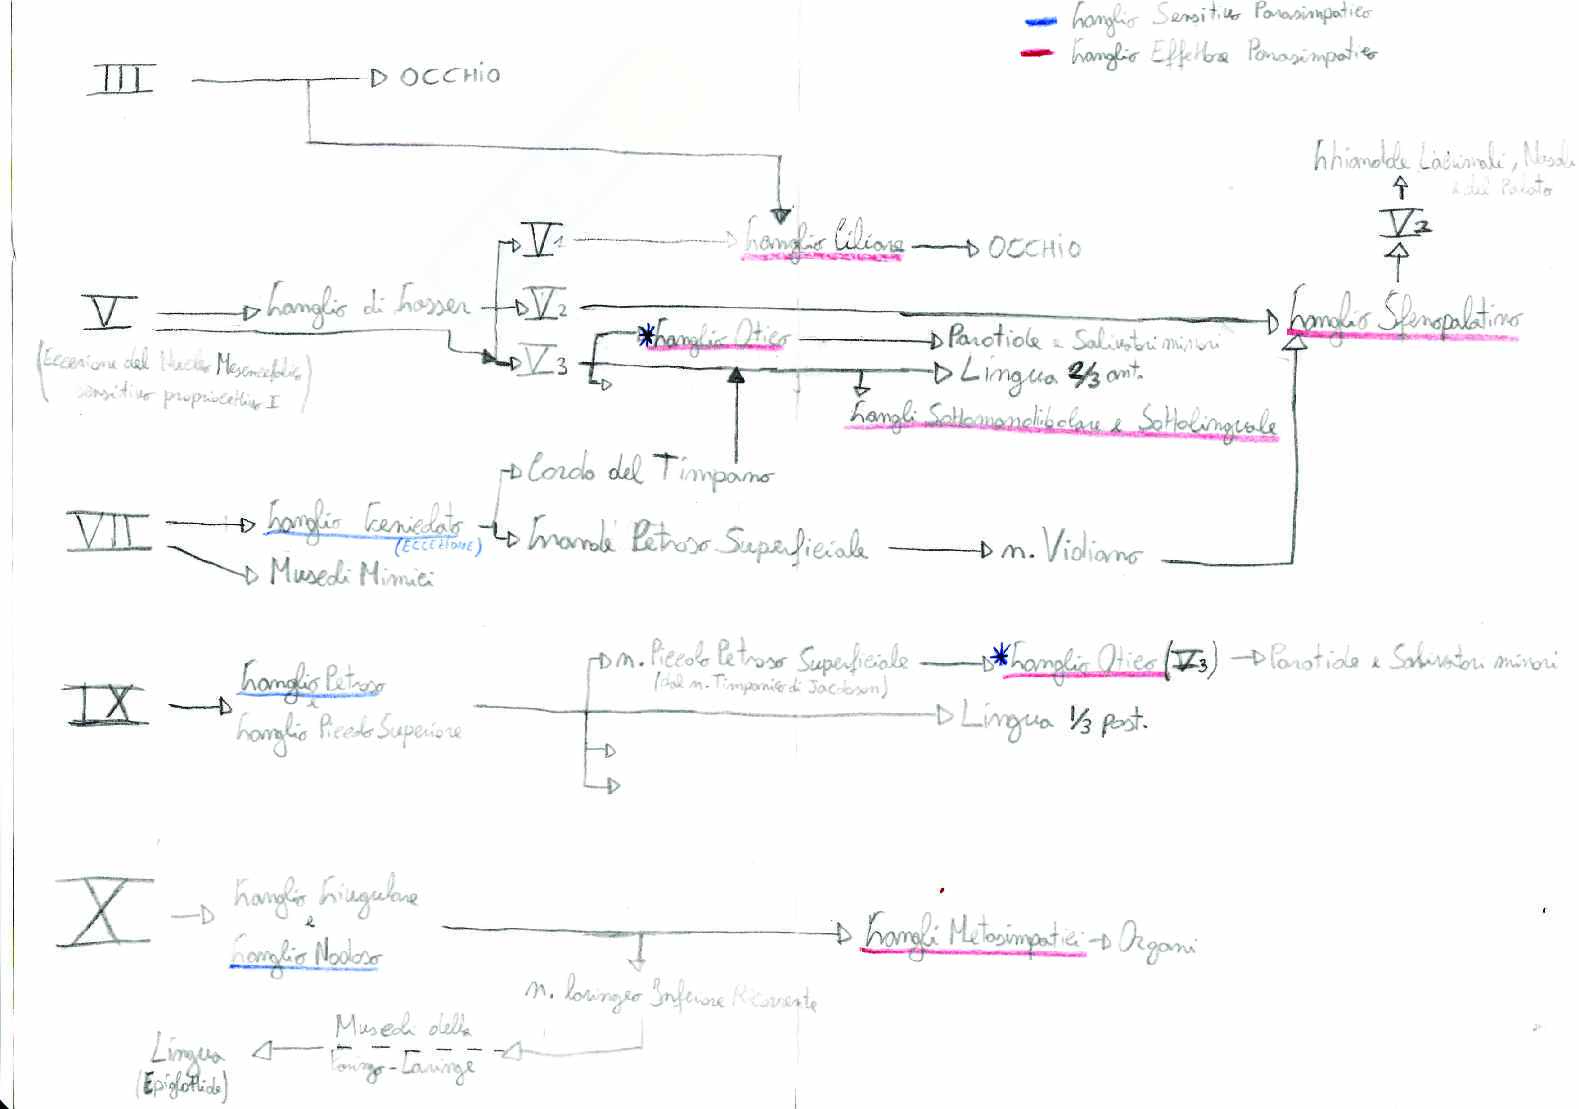 Ganglio Sensitivo Parasimpatico
Ganglio Effettore Parasimpatico
III
OCCHIO
Ghiandole Lacrimali, Nasali
e del Palato
V2
V1
Ganglio Ciliare
OCCHIO
V
Ganglio di Gasser
V2
Ganglio Sfenopalatino
*Ganglio Otico
Parotide e Salivatori minori
(Eccezione del Nucleo Mesencefalico
sensitivo propriocettivo I)
V3
Lingua 2/3 ant.
Gangli Sottomandibolare e Sottolinguale
Corda del Timpano
VII
Ganglio Genicolato
(ECCEZIONE)
Grande Petroso Superficiale
n. Vidiano
Muscoli Mimici
IX
Ganglio Petroso
e
Ganglio Piccolo Superiore
n. Piccolo Petroso Superficiale
(dal n. Timpanico di Jacobson)
*Ganglio Otico (V3)
Parotide e Salivatori minori
Lingua 1/3 post.
X
Ganglio Giugulare
e
Ganglio Nodoso
Gangli Metasimpatici
Organi
n. laringeo Inferiore Ricorrente
Muscoli della
Faringo-Laringe
Lingua
(Epiglottide)